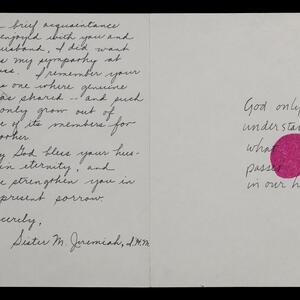 brief acquaintance
enjoyed with you and
husband, I did want
s my sympathy at
ss. I remember your
s one where genuine
as shared -- and such
only grow out of
e of its members for
other.
y God bless your hus-
in eternity, and
e strengthen you in
present sorrow.
cerely,
Sister M. Jeremiah, I.H.M.
God only
understan
what
passes
in our h